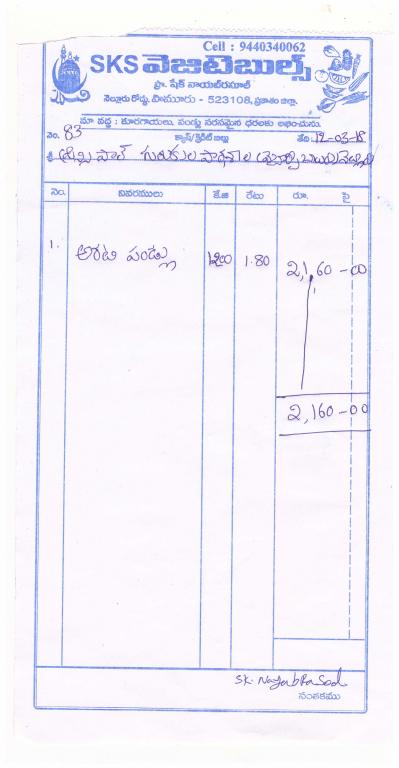 Cell : 9440340062
SKS వెజిటెబుల్స్
ప్రొ. షేక్ నాయబ్‌రసూల్
నెల్లూరు రోడ్డు, పామూరు - 523108, ప్రకాశం జిల్లా.
మా వద్ద : కూరగాయలు, పండ్లు సరసమైన ధరలకు లభించును.
నెం. 83 క్యాష్/క్రెడిట్ బిల్లు తేది 12-03-18
శ్రీ
నెం. వివరములు కే.జి రేటు రూ. పై
1. అరటి పండ్లు 1200 1.80 2,160-00
2,160-00
SK. NayabRasool
సంతకము